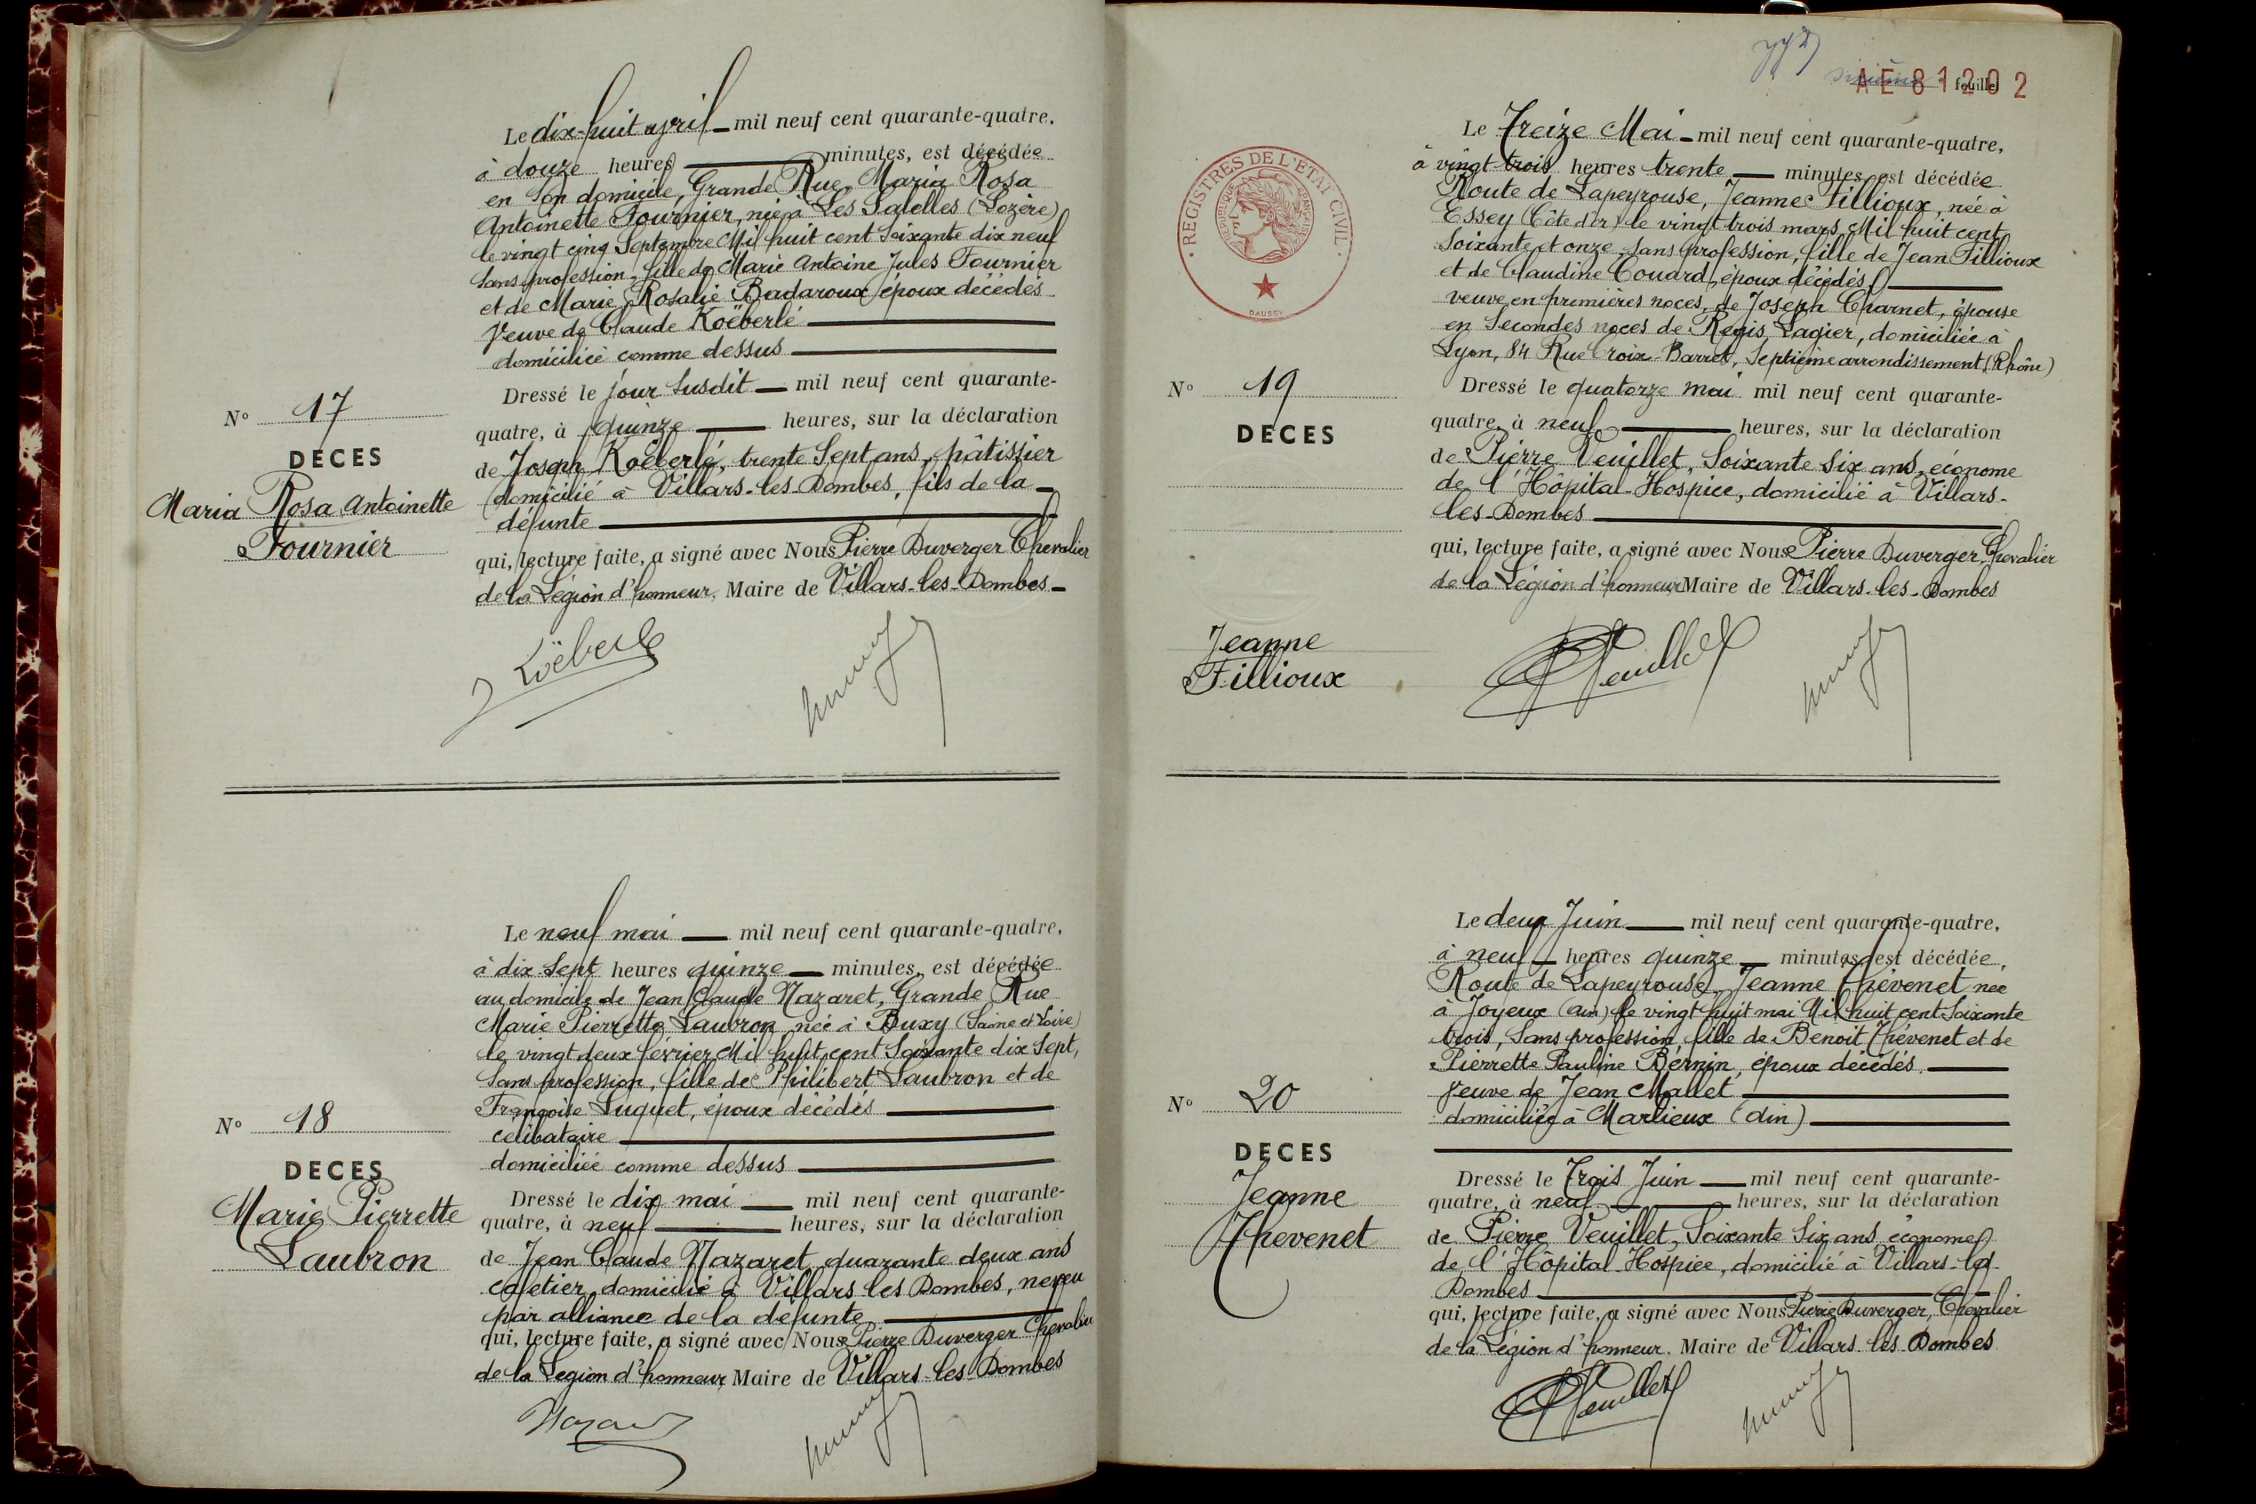 Le dix-huit avril mil neuf cent quarante-quatre,
à douze heures minutes, est décédée
en son domicile, Grande Rue, Maria Rosa
Antoinette Fournier, née à Les Salelles (Lozère)
le vingt cinq Septembre Mil huit cent soixante dix neuf
sans profession, fille de Marie Antoine Jules Fournier
et de Marie Rosalie Badaroux époux décédés
Veuve de Claude Koëberlé
domiciliée comme dessus
Dressé le jour susdit mil neuf cent quarante-
quatre, à quinze heures, sur la déclaration
de Joseph Koëberlé, trente Sept ans, pâtissier
domicilié à Villars-les-Dombes, fils de la
défunte
qui, lecture faite, a signé avec Nous Pierre Duverger Chevalier
de la Légion d'honneur, Maire de Villars-les-Dombes
J Koëberlé
N° 17
DECES
Maria Rosa Antoinette
Fournier
Le neuf mai mil neuf cent quarante-quatre,
à dix Sept heures quinze minutes, est décédée
au domicile de Jean Claude Nazaret, Grande Rue
Marie Pierrette Laubron, née à Buxy (Saône et Loire)
le vingt deux février Mil huit cent Soixante dix Sept,
Sans profession, fille de Philibert Laubron et de
Françoise Luquet, époux décédés
célibataire
domiciliée comme dessus
Dressé le dix mai mil neuf cent quarante-
quatre, à neuf heures, sur la déclaration
de Jean Claude Nazaret, quarante deux ans
cafetier, domicilié à Villars les Dombes, neveu
par alliance de la défunte
qui, lecture faite, a signé avec Nous Pierre Duverger Chevalier
de la Légion d'honneur, Maire de Villars-les-Dombes
N° 18
DECES
Marie Pierrette
Laubron
AE 81202
feuillet
REGISTRES DE L'ETAT CIVIL
REPUBLIQUE FRANÇAISE
DAUSSY
Le Treize Mai mil neuf cent quarante-quatre,
à vingt-trois heures trente minutes, est décédée
Route de Lapeyrouse, Jeanne Fillioux, née à
Essey (Côte d'or) le vingt trois mars Mil huit cent
Soixante et onze, Sans profession, fille de Jean Fillioux
et de Claudine Couard, époux décédés,
veuve en premières noces, de Joseph Charnet, épouse
en Secondes noces de Régis Lagier, domiciliée à
Lyon, 84 Rue Croix-Barret, Septième arrondissement (Rhône)
Dressé le quatorze mai mil neuf cent quarante-
quatre, à neuf heures, sur la déclaration
de Pierre Veuillet, Soixante Six ans, économe
de l'Hôpital-Hospice, domicilié à Villars-
les-Dombes
qui, lecture faite, a signé avec Nous Pierre Duverger Chevalier
de la Légion d'honneur Maire de Villars-les-Dombes
Veuillet
N° 19
DECES
Jeanne
Fillioux
Le deux Juin mil neuf cent quarante-quatre,
à neuf heures quinze minutes, est décédée,
Route de Lapeyrouse, Jeanne Thévenet née
à Joyeux (Ain) le vingt huit mai Mil huit cent Soixante
trois, Sans profession, fille de Benoit Thévenet et de
Pierrette Pauline Bernin, époux décédés,
Veuve de Jean Mallet
domiciliée à Marlieux (Ain)
Dressé le Trois Juin mil neuf cent quarante-
quatre, à neuf heures, sur la déclaration
de Pierre Veuillet, Soixante Six ans, économe
de l'Hôpital-Hospice, domicilié à Villars-les
Dombes
qui, lecture faite, a signé avec Nous Pierre Duverger, Chevalier
de la Légion d'honneur. Maire de Villars-les-Dombes
Veuillet
N° 20
DECES
Jeanne
Thevenet